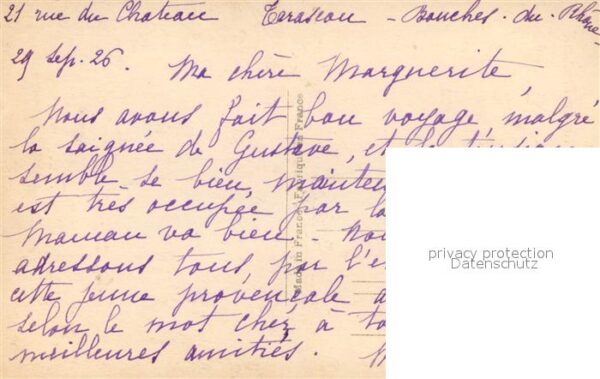 21 rue du Chateau Tarascon - Bouches-du-Rhône-
29 Sep. 26. Ma chère Marguerite,
Nous avons fait bon voyage, malgré
la saignée de Gustave, et le
semble se bien
est très occupée par la
Maman va bien -
adressons tous, par l'e
cette jeune provençale a
selon le mot cher à to
meilleures amitiés.
Made in France - Fabriqué en France
privacy protection
Datenschutz